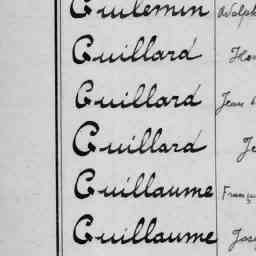 Guilemin Adolph
Guillard
Guillard Jean
Guillard
Guillaume Franço
Guillaume Jose